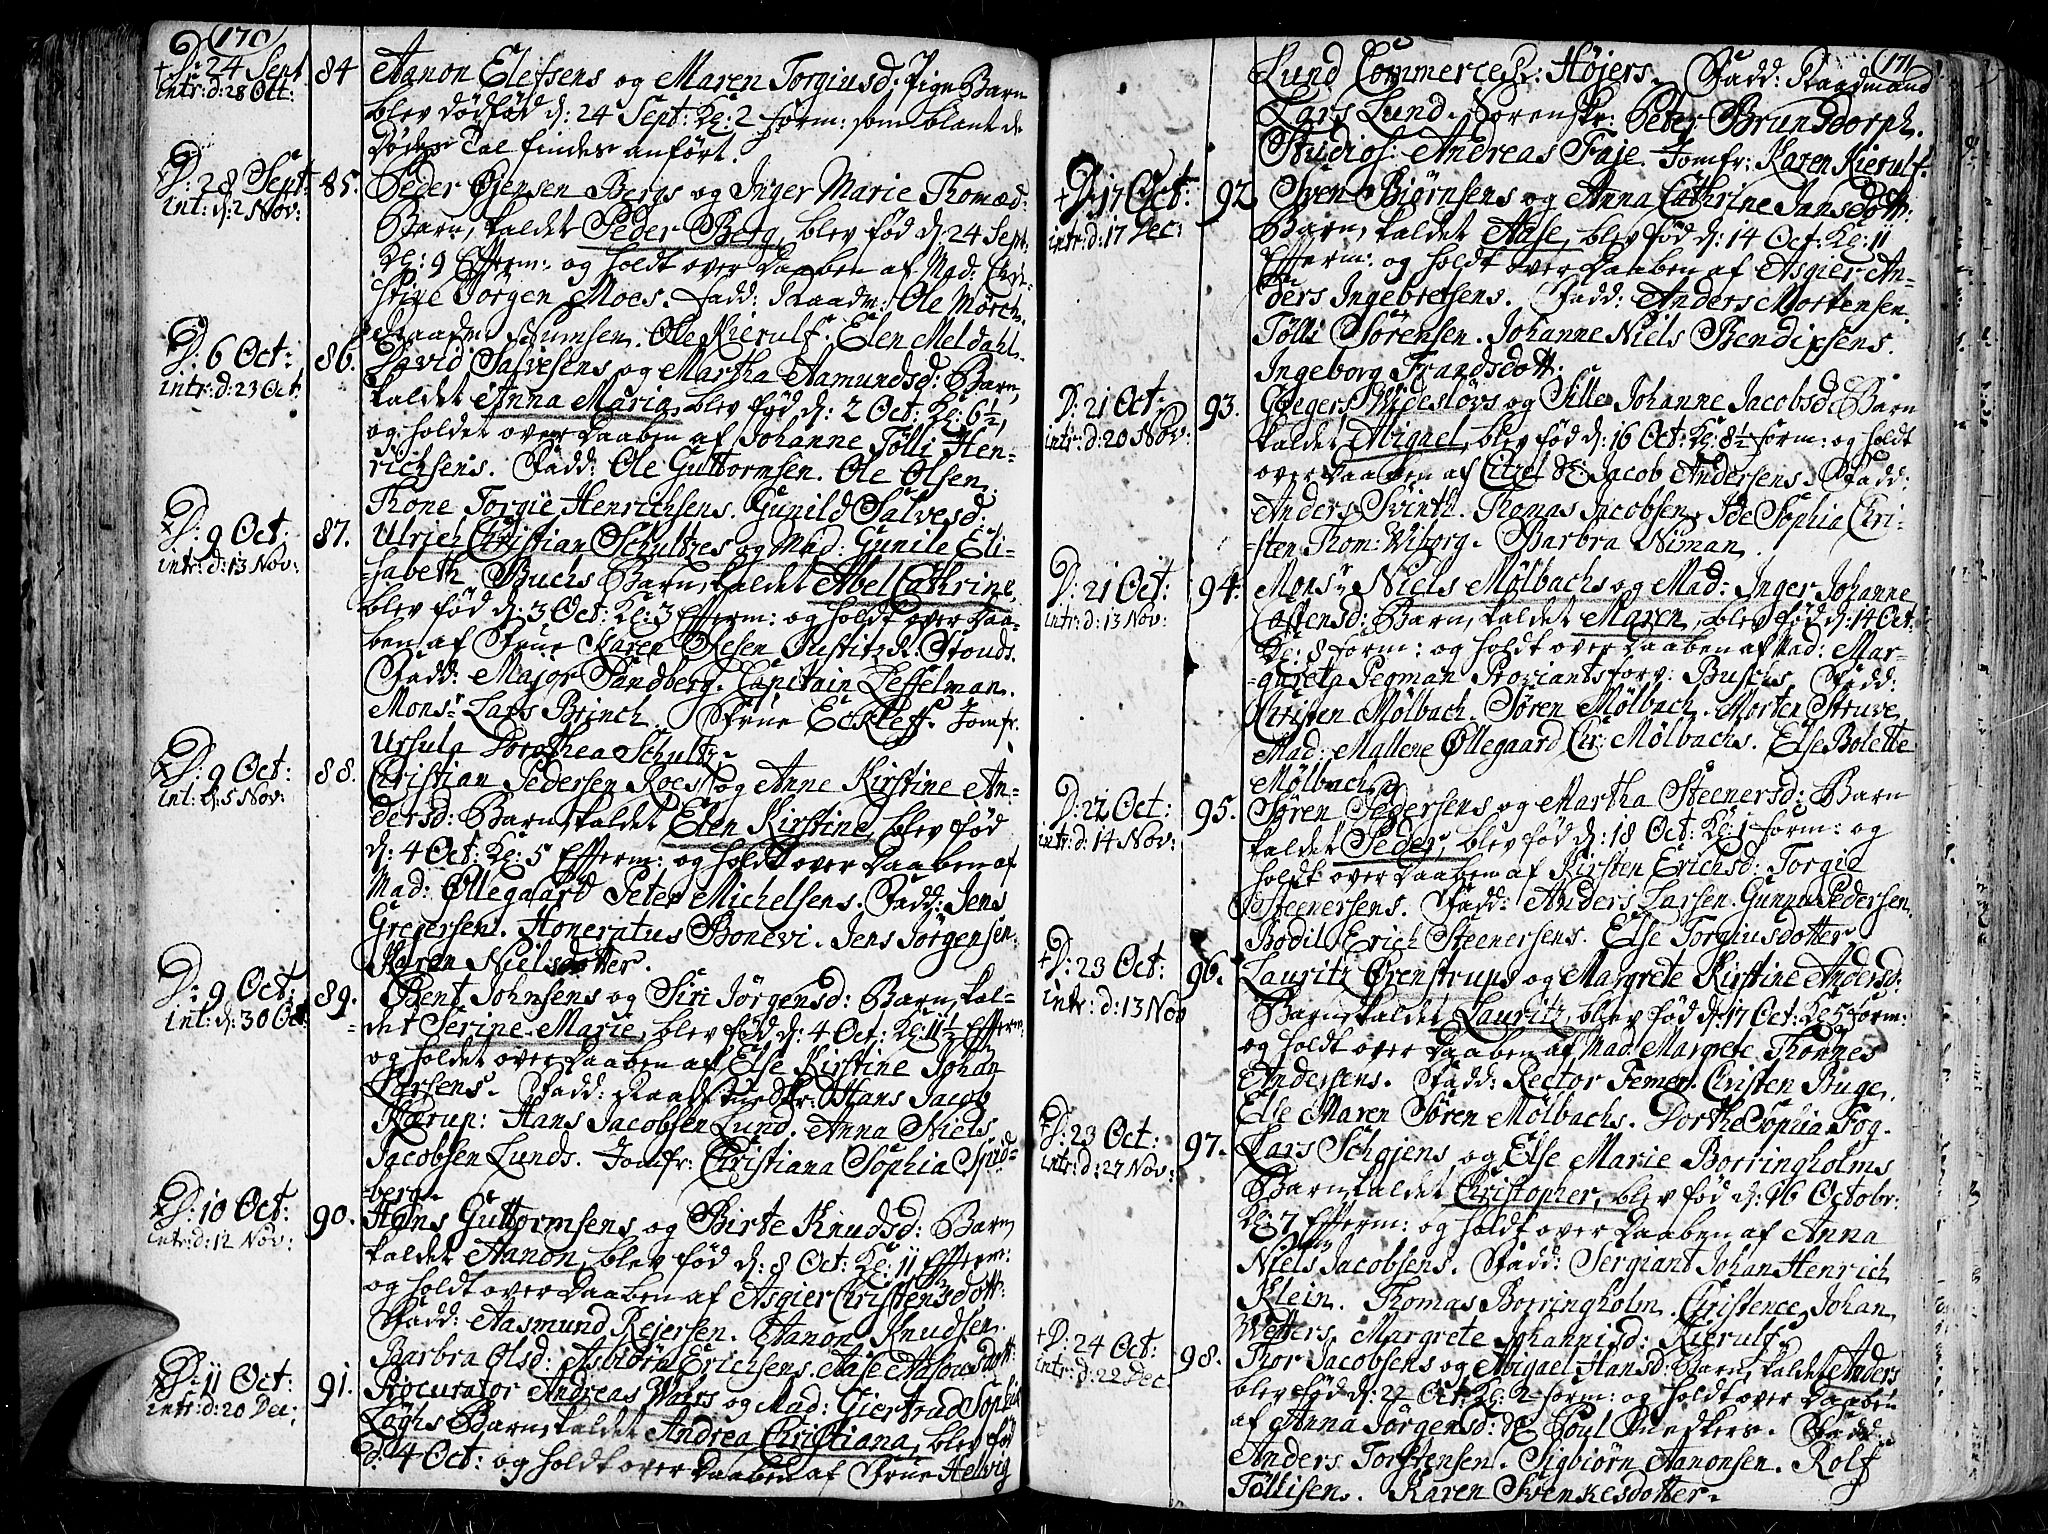 170
+ D: 24 Sept 84 Aanon Elefsens og Maren Torgiusd: Pige Barn
intr: d: 28 Oct: blev dødfød d: 24 Sept: Kl: 2 form: som blant de
Dødes Tal findes anført.
D: 28 Sept: 85. Peder Øjensen Bergs og Inger Marie Thomæd:
int: d: 2 Nov: Barn, kaldet Peder Berg, blev fød d: 24 Sept,
Kl: 9 Efterm: og holdt over Daaben af Mad: Chri-
stine Jørgen Moes. Fadd: Raadm: Ole Mørch.
Raadm: Numsen. Ole Kierulf. Elen Meldahl.
D: 6 Oct: 86. David Salvesens og Martha Aamundsd: Barn,
intr: d: 23 Oct kaldet Anna Maria, blev fød d: 2 Oct: Kl: 6½,
og holdet over Daaben af Johanne Tølli Hen-
richsens. Fadd: Ole Guttormsen. Ole Olsen.
Thone Torgie Henrichsens. Gunild Salvesd:
D: 9 Oct: 87. Ulrich Christian Schultzes og Mad: Gunile Eli-
intr: d: 13 Nov: sabeth Buchs Barn, kaldet Abel Cathrine,
blev fød d: 3 Oct: Kl: 3 Efterm: og holdt over Daa-
ben af Frue Karen Resen Justitz R. Stouds.
Fadd: Major Sandberg. Capitain Leffelman.
Mons:r Lars Brinch. Frue Eckleff. Jomfr:
Ursula Dorothea Schultz.
D: 9 Oct: 88. Christian Pedersen Roes og Anne Kirstine An-
int: d: 5 Nov: dersd: Barn, kaldet Elen Kirstine, blev fød
d: 4 Oct: Kl: 5 Efterm: og holdt over Daaben af
Mad: Øllegaard Peter Michelsens. Fadd: Jens
Gregersen. Honeratus Bonevi. Jens Jørgensen.
Karen Nielsdotter.
D: 9 Oct: 89. Bent Johnsens og Siri Jørgensd: Barn, kal-
int: d: 30 Oct det Serine Marie, blev fød d: 4 Oct: Kl: 11½ Efterm:
og holdet over Daaben af Else Kirstine Johan
Larsens. Fadd: Raadstueskr: Hans Jacob
Kårup: Hans Jacobsen Lund. Anna Niels
Jacobsen Lunds. Jomfr: Christiana Sophia Spid-
berg.
D: 10 Oct: 90. Hans Guttormsens og Birte Knudsd: Barn,
intr: d: 12 Nov: kaldet Aanon, blev fød d: 8 Oct: Kl: 11 Efterm:
og holdt over Daaben af Asgier Christensdott:
Fadd: Aasmund Rejersen. Aanon Knudsen.
Barbra Olsd: Asbiørn Erichsens. Aase
D: 11 Oct: 91. Procurator Andreas Wiis og Mad: Giertrud Sophie
intr: d: 20 Dec; Løghs Barn, kaldet Andrea Christiana, blev fød
d: 4 Oct: og holdt over Daaben af Frue Helvig
171
Lund Commerce R: Højers. Fadd: Raadmand
Lars Lund. Sorenskr: Peter Brunsdorph.
Studios: Andreas Faje. Jomfr: Karen Kierulf.
+ D: 17 Oct: 92. Sven Biørnsens og Anna Cathrine Jansdott:
intr: d: 17 Dec: Barn, kaldet Aase, blev fød d: 14 Oct: Kl: 11
Efterm: og holdt over Daaben af Asgier An-
ders Ingebretsens. Fadd: Anders Mortensen.
Tølli Sørensen. Johanne Niels Bendixsens.
Ingeborg Frandsdott:
D: 21 Oct: 93. Gregers og Sille Johanne Jacobsd: Barn
intr: d: 20 Nov: kaldet Abigael, blev fød d: 16 Oct: Kl: 8½ form: og holdt
over Daaben af Citzel Jacob Andersens. Fadd:
Anders Svinth. Thomas Jacobsen. Ide Sophia Chri-
sten Thom: Wiborg. Barbra Niman.
D: 21 Oct: 94. Monsr Niels Mølbachs og Mad: Inger Johanne
intr: d: 13 Nov: Castensd: Barn, kaldet Maren, blev fød d: 14 Oct:
Kl: 8 form: og holdt over Daaben af Mad: Mar-
greta Pegman Proviantsforv: Buschs. Fadd:
Christen Mølbach. Søren Mølbach. Morten Struve.
Mad: Mallene Øllegaard Chr: Mølbachs. Else Bolette
Mølbach.
D: 22 Oct: 95. Søren Pedersens og Martha Steenersd: Barn
intr: d: 14 Nov: kaldet Peder, blev fød d: 18 Oct: Kl: 1 form: og
holdt over Daaben af Kirsten Erichsd: Torgie
Steenersens. Fadd: Anders Larsen. Gunnu Pedersen.
Bodil Erich Steenersens. Else Torgiusdotter
+ D: 23 Oct: 96. Lauritz Ørenstrups og Margrete Kirstine Andersd:
intr: d: 13 Nov Barn, kaldet Lauritz, blev fød d: 17 Oct: Kl: 5 form:
og holdt over Daaben af Mad: Margrete Thonnes
Andersens. Fadd: Rector Femer. Christen Buge.
Else Maren Søren Mølbachs. Dorthe Sophia Fog.
D: 23 Oct: 97. Lars Schojens og Else Marie Borringholms
intr: d: 27 Nov: Barn, kaldet Christopher, blev fød d: 16 Octobr:
Kl: 7 Efterm: og holdt over Daaben af Anna
Niels Jacobsens. Fadd: Sergiant Johan Henrich
Klein. Thomas Borringholm. Christence Johan
Wetters. Margrete Johannisd: Kierulf.
+ D: 24 Oct: 98. Thor Jacobsens og Abigael Hansd: Barn, kaldet Anders
intr: d: 22 Dec. blev fød d: 22 Oct: Kl: 2 form: og holdt over Daaben
af Anna Jørgensd: Poul Fadd:
Anders Torstensen. Sigbiørn Aanonsen. Rolf
Tøllisen. Karen Svenkesdotter.